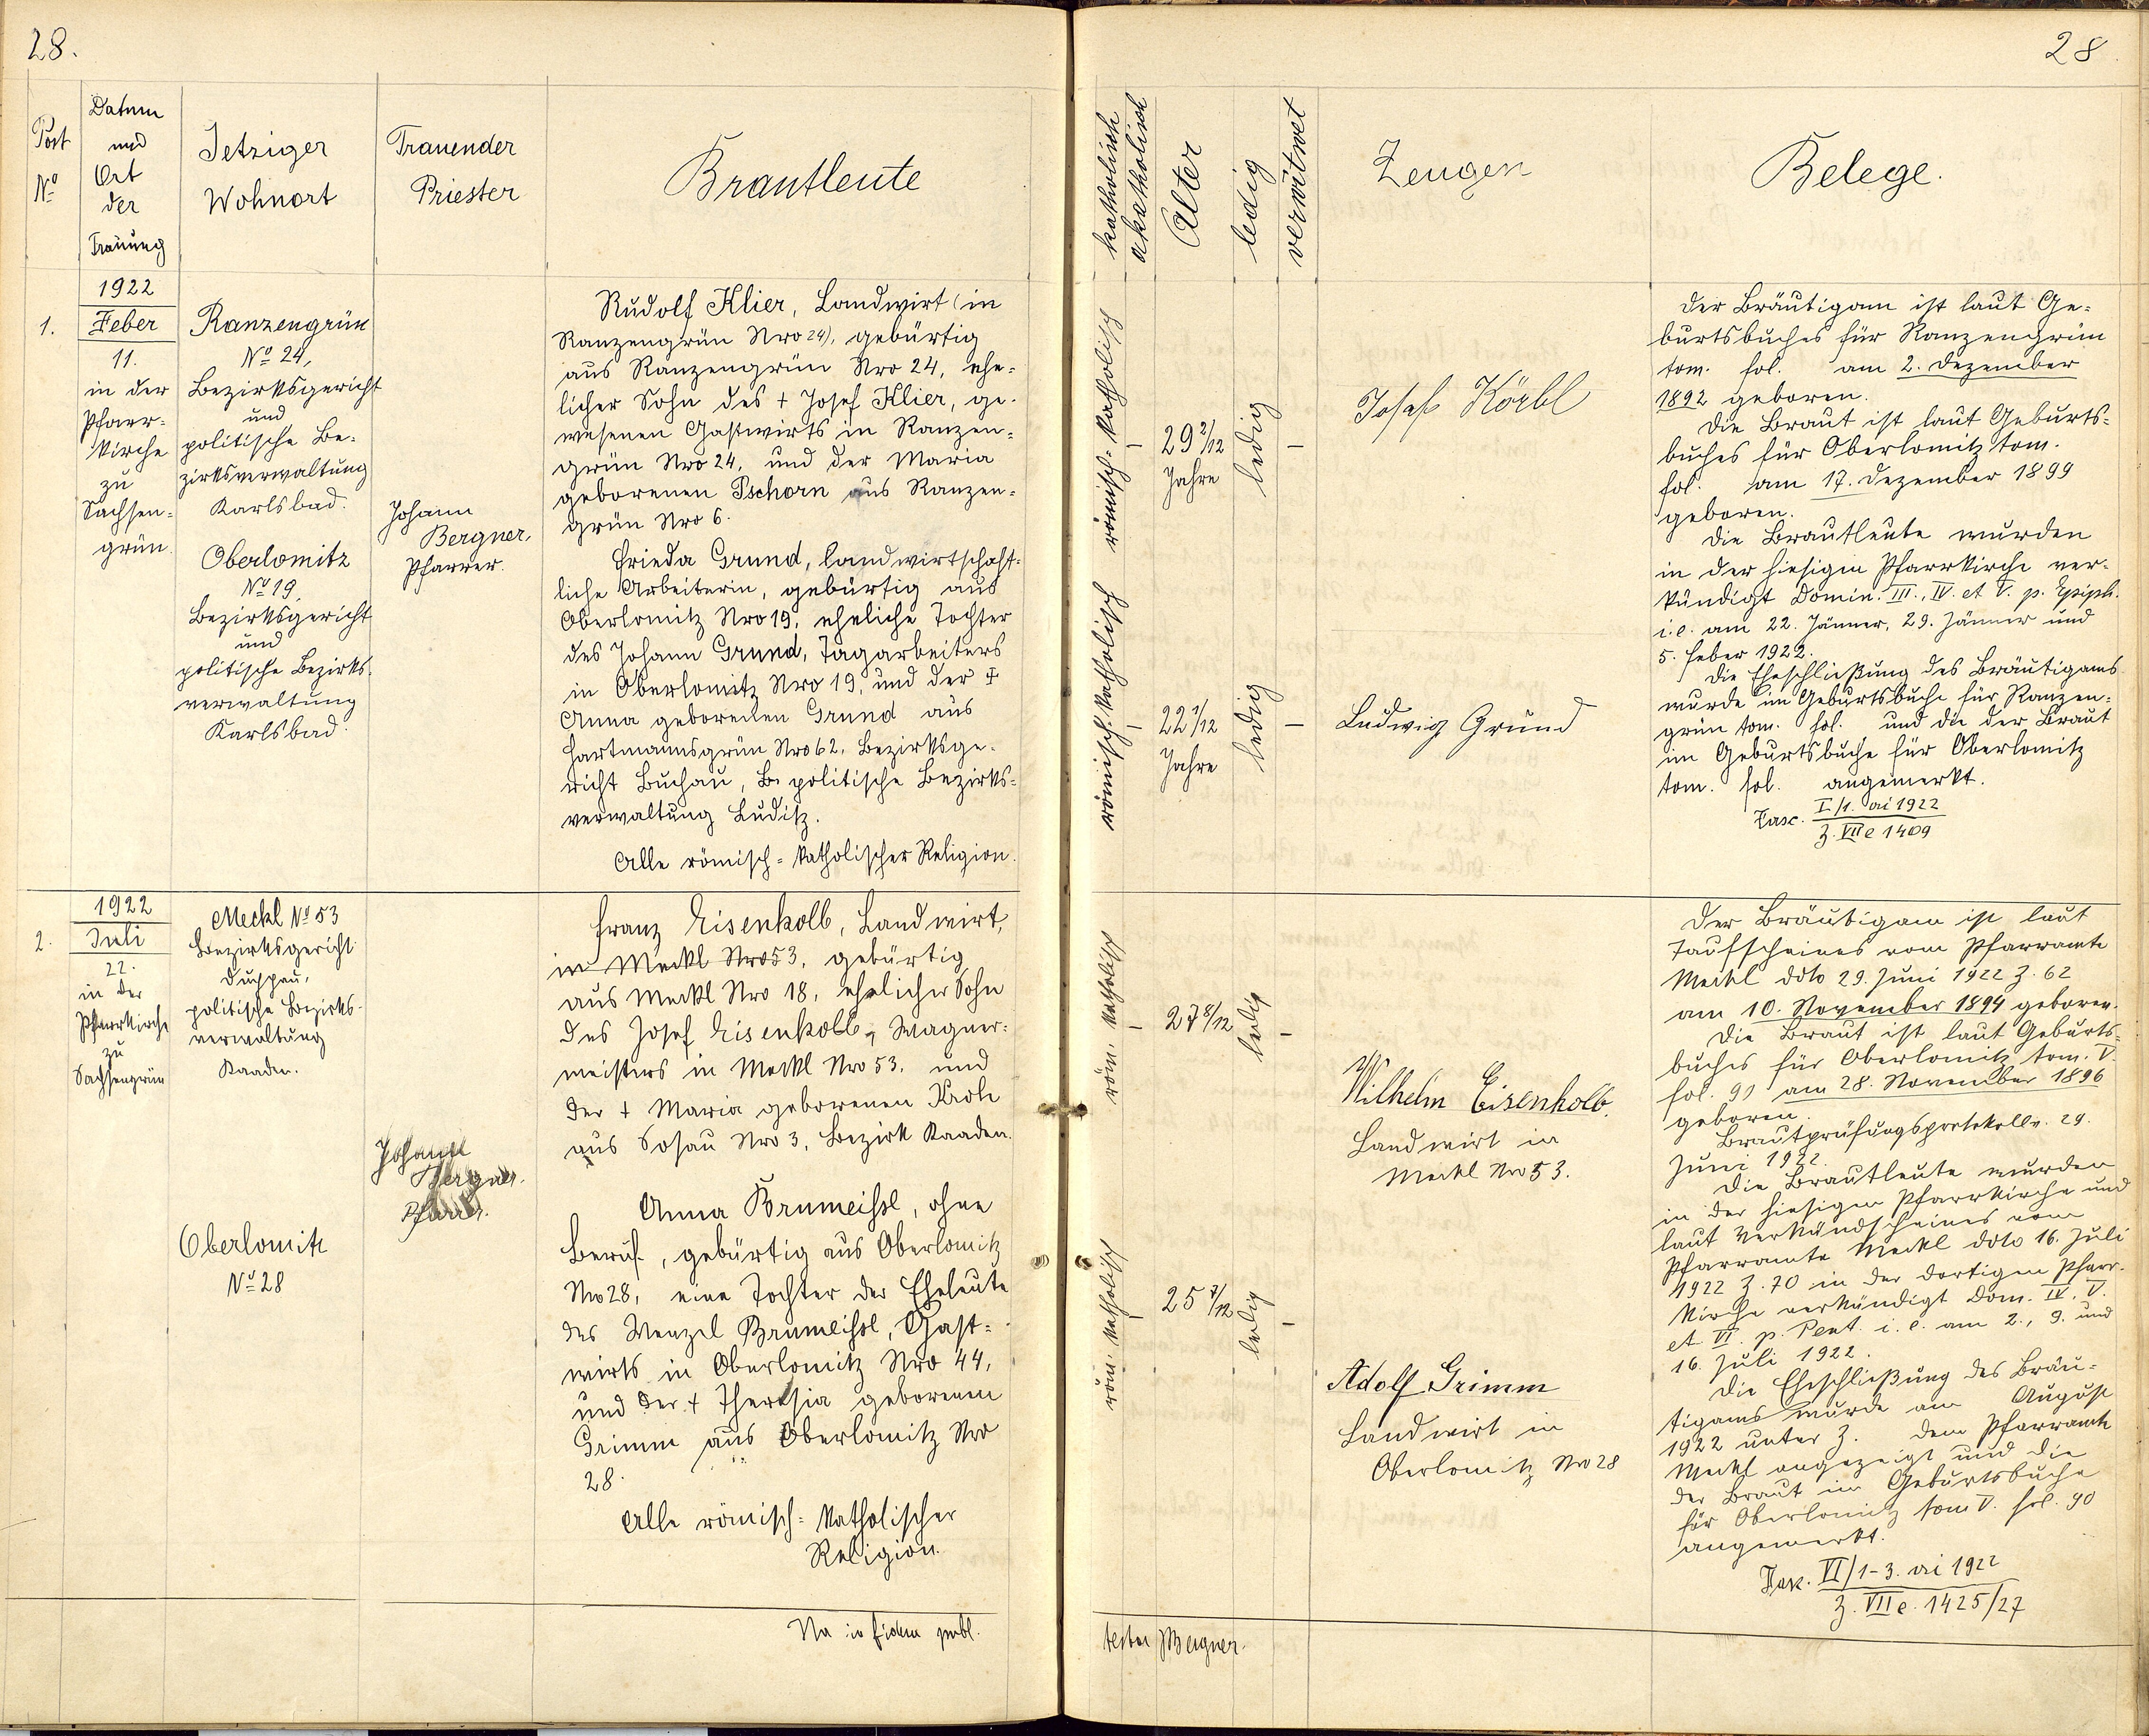 28.
28
Post
No
Datum
und
Ort
der
Trauung
Jetziger
Wohnort
Trauender
Priester
Brautleute
katholisch
akatholisch
Alter
ledig
verwitwet
Zeugen
Belege.
1.
1922
Feber
11.
in der
Pfarr-
kirche
zu
Sachsen-
grün.
Ranzengrün
No 24,
Bezirksgericht
und
politische Be-
zirksverwaltung
Karlsbad.
Oberlomitz
No 19,
Bezirksgericht
und
politische Bezirks-
verwaltung
Karlsbad.
Johann
Bergner,
Pfarrer.
Rudolf Klier, Landwirt (in
Ranzengrün Nro 24), gebürtig
aus Ranzengrün Nro 24, ehe-
licher Sohn des + Josef Klier, ge-
wesenen Gastwirts in Ranzen-
grün Nro 24, und der Maria
geborenen Pschorn aus Ranzen-
grün Nro 6.
Frieda Grund, landwirtschaft-
liche Arbeiterin, gebürtig aus
Oberlomitz Nro 19, eheliche Tochter
des Johann Grund, Tagarbeiters
in Oberlomitz Nro 19, und der +
Anna geborenen Grund aus
Hartmannsgrün Nro 62, Bezirksge-
richt Buchau, politische Bezirks-
verwaltung Luditz.
Alle römisch-katholischer Religion.
römisch-katholisch
–
29 2/12
Jahre
ledig
–
römisch-katholisch
–
22 1/12
Jahre
ledig
–
Josef Körbl
Ludwig Grund
Der Bräutigam ist laut Ge-
burtsbuches für Ranzengrün
tom. fol. am 2. Dezember
1892 geboren.
Die Braut ist laut Geburts-
buches für Oberlomitz tom.
fol. am 17. Dezember 1899
geboren.
Die Brautleute wurden
in der hiesigen Pfarrkirche ver-
kündigt Domin. III., IV. et V. p. Epiph.
i.e. am 22. Jänner, 29. Jänner und
5. Feber 1922.
Die Eheschließung des Bräutigams
wurde im Geburtsbuche für Ranzen-
grün tom. fol. und die der Braut
im Geburtsbuche für Oberlomitz
tom. fol. angemerkt.
Fasc. I/1. ai 1922
Z. VII e 1409
2.
1922
Juli
22.
in der
Pfarrkirche
zu
Sachsengrün
Meckl No 53
Bezirksgericht
Duppau,
politische Bezirks-
verwaltung
Kaaden.
Oberlomitz
No 28
Johann
Bergner.
Pfarrer.
Franz Eisenkolb, Landwirt,
in Meckl Nro 53, gebürtig
aus Meckl Nro 18, ehelicher Sohn
des Josef Eisenkolb, Wagner-
meisters in Meckl Nro 53, und
der + Maria geborenen Kroh
aus Sosau Nro 3, Bezirk Kaaden.
Anna Brumeissl, ohne
Beruf, gebürtig aus Oberlomitz
Nro 28, eine Tochter der Eheleute
des Wenzel Brumeissl, Gast-
wirts in Oberlomitz Nro 44,
und der + Theresia geborenen
Grimm aus Oberlomitz Nro
28.
Alle römisch-katholischer
Religion.
röm. katholisch
–
27 8/12
ledig
–
röm. katholisch
–
25 7/12
ledig
–
Wilhelm Eisenkolb.
Landwirt in
Meckl Nro 53.
Adolf Grimm
Landwirt in
Oberlomitz Nro 28
Der Bräutigam ist laut
Taufscheines vom Pfarramte
Meckl ddto 29. Juni 1922 Z. 62
am 10. November 1894 geboren.
Die Braut ist laut Geburts-
buches für Oberlomitz tom. V.
fol. 90 am 28. November 1896
geboren.
Brautprüfungsprotokoll v. 29.
Juni 1922.
Die Brautleute wurden
in der hiesigen Pfarrkirche und
laut Verkündscheines vom
Pfarramte Meckl ddto 16. Juli
1922 Z. 70 in der dortigen Pfarr-
kirche verkündigt Dom. IV. V.
et VI. p. Pent. i. e. am 2., 9. und
16. Juli 1922.
Die Eheschließung des Bräu-
tigams wurde am August
1922 unter Z. dem Pfarramte
Meckl angezeigt und die
der Braut im Geburtsbuche
für Oberlomitz tom V. fol. 90
angemerkt.
Fask. VI/1-3. ai 1922
Z. VII e. 1425/27
in fidem publ.
testor JBergner.